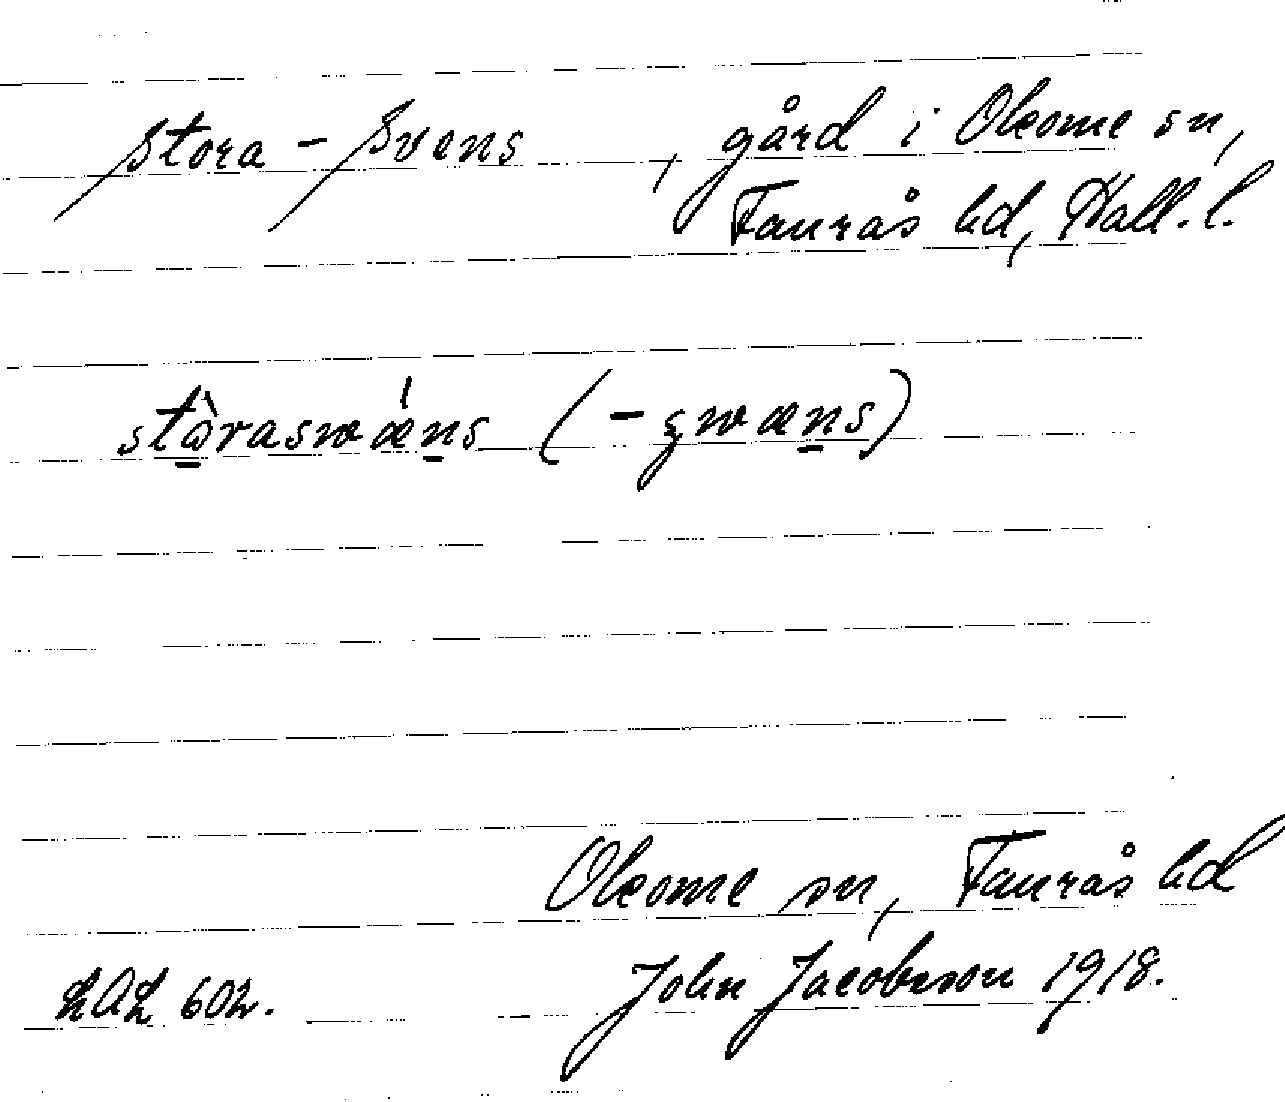 Stora-Svens, gård i Okome sn,
Faurås hd, Hall. l.
stɷ̀raswǽns (-ʒwæns)
Okome sn, Faurås hd
LAL 602. John Jacobsson 1918.